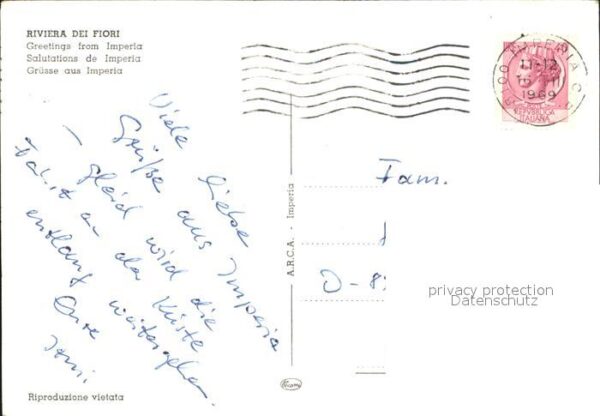 RIVIERA DEI FIORI
Greetings from Imperia
Salutations de Imperia
Grüsse aus Imperia
Viele liebe
Grüße aus Imperia
Gleich wird die
Fahrt an der Küste
entlang weitergehen.
Eure
Riproduzione vietata
A.R.C.A. - Imperia
IMPERIA C
11-12
1969
REPUBBLICA
ITALIANA
Fam.
D-8
privacy protection
Datenschutz